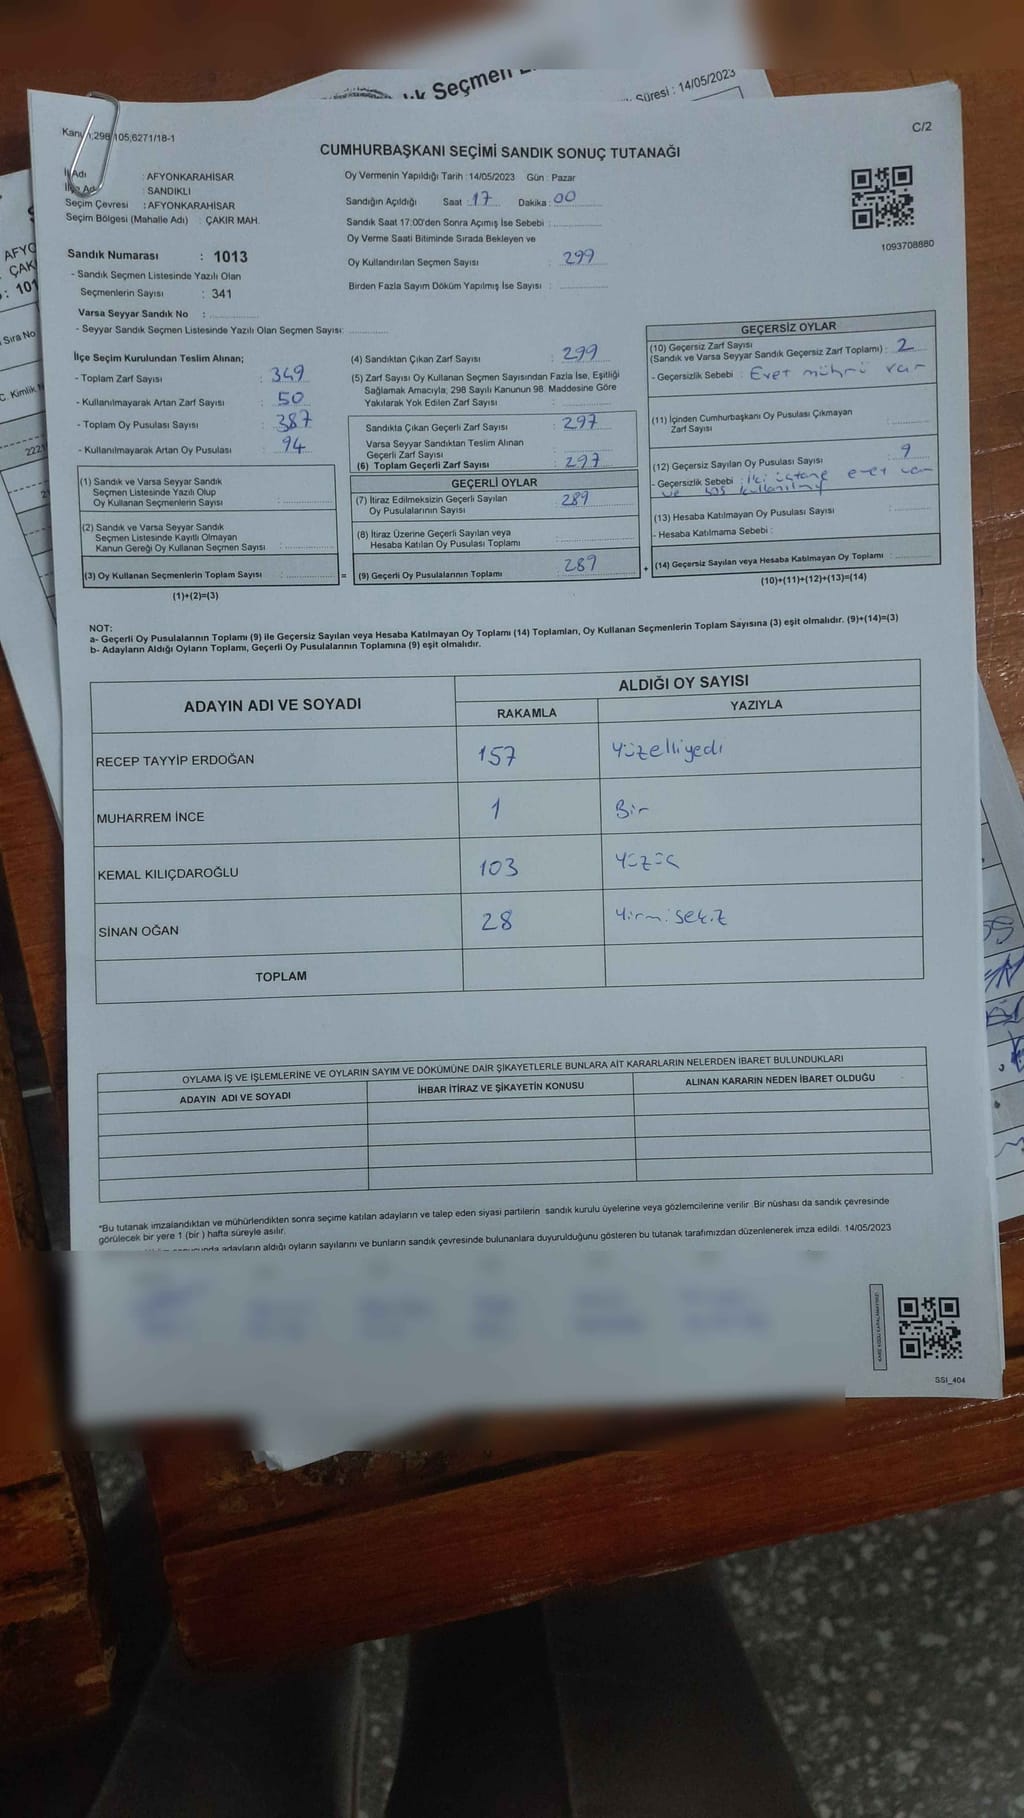 lk Seçmen
Süresi : 14/05/2023
Kanun:298,105,6271/18-1
C/2
CUMHURBAŞKANI SEÇİMİ SANDIK SONUÇ TUTANAĞI
İl Adı : AFYONKARAHİSAR
İlçe Adı : SANDIKLI
Seçim Çevresi : AFYONKARAHİSAR
Seçim Bölgesi (Mahalle Adı) : ÇAKIR MAH.
Oy Vermenin Yapıldığı Tarih : 14/05/2023 Gün : Pazar
Sandığın Açıldığı Saat : 17 Dakika : 00
Sandık Saat 17:00'den Sonra Açımış İse Sebebi :
Oy Verme Saati Bitiminde Sırada Bekleyen ve
Oy Kullandırılan Seçmen Sayısı : 299
Birden Fazla Sayım Döküm Yapılmış İse Sayısı :
1093708880
Sandık Numarası : 1013
- Sandık Seçmen Listesinde Yazılı Olan
Seçmenlerin Sayısı : 341
Varsa Seyyar Sandık No :
- Seyyar Sandık Seçmen Listesinde Yazılı Olan Seçmen Sayısı:
İlçe Seçim Kurulundan Teslim Alınan;
- Toplam Zarf Sayısı : 349
- Kullanılmayarak Artan Zarf Sayısı : 50
- Toplam Oy Pusulası Sayısı : 387
- Kullanılmayarak Artan Oy Pusulası : 94
(1) Sandık ve Varsa Seyyar Sandık
Seçmen Listesinde Yazılı Olup
Oy Kullanan Seçmenlerin Sayısı :
(2) Sandık ve Varsa Seyyar Sandık
Seçmen Listesinde Kayıtlı Olmayan
Kanun Gereği Oy Kullanan Seçmen Sayısı :
(3) Oy Kullanan Seçmenlerin Toplam Sayısı : =
(1)+(2)=(3)
(4) Sandıktan Çıkan Zarf Sayısı : 299
(5) Zarf Sayısı Oy Kullanan Seçmen Sayısından Fazla İse, Eşitliği
Sağlamak Amacıyla; 298 Sayılı Kanunun 98. Maddesine Göre
Yakılarak Yok Edilen Zarf Sayısı :
Sandıkta Çıkan Geçerli Zarf Sayısı : 297
Varsa Seyyar Sandıktan Teslim Alınan
Geçerli Zarf Sayısı :
(6) Toplam Geçerli Zarf Sayısı : 297
GEÇERLİ OYLAR
(7) İtiraz Edilmeksizin Geçerli Sayılan
Oy Pusulalarının Sayısı : 289
(8) İtiraz Üzerine Geçerli Sayılan veya
Hesaba Katılan Oy Pusulası Toplamı :
(9) Geçerli Oy Pusulalarının Toplamı : 289 +
GEÇERSİZ OYLAR
(10) Geçersiz Zarf Sayısı
(Sandık ve Varsa Seyyar Sandık Geçersiz Zarf Toplamı) : 2
- Geçersizlik Sebebi : Evet mührü var
(11) İçinden Cumhurbaşkanı Oy Pusulası Çıkmayan
Zarf Sayısı :
(12) Geçersiz Sayılan Oy Pusulası Sayısı : 9
- Geçersizlik Sebebi : iki üstane evet var
ve boş kullanılmış
(13) Hesaba Katılmayan Oy Pusulası Sayısı :
- Hesaba Katılmama Sebebi :
(14) Geçersiz Sayılan veya Hesaba Katılmayan Oy Toplamı :
(10)+(11)+(12)+(13)=(14)
NOT:
a- Geçerli Oy Pusulalarının Toplamı (9) ile Geçersiz Sayılan veya Hesaba Katılmayan Oy Toplamı (14) Toplamları, Oy Kullanan Seçmenlerin Toplam Sayısına (3) eşit olmalıdır. (9)+(14)=(3)
b- Adayların Aldığı Oyların Toplamı, Geçerli Oy Pusulalarının Toplamına (9) eşit olmalıdır.
ADAYIN ADI VE SOYADI
ALDIĞI OY SAYISI
RAKAMLA YAZIYLA
RECEP TAYYİP ERDOĞAN 157 Yüzelliyedi
MUHARREM İNCE 1 Bir
KEMAL KILIÇDAROĞLU 103 Yüzüç
SİNAN OĞAN 28 Yirmisekiz
TOPLAM
OYLAMA İŞ VE İŞLEMLERİNE VE OYLARIN SAYIM VE DÖKÜMÜNE DAİR ŞİKAYETLERLE BUNLARA AİT KARARLARIN NELERDEN İBARET BULUNDUKLARI
ADAYIN ADI VE SOYADI İHBAR İTİRAZ VE ŞİKAYETİN KONUSU ALINAN KARARIN NEDEN İBARET OLDUĞU
*Bu tutanak imzalandıktan ve mühürlendikten sonra seçime katılan adayların ve talep eden siyasi partilerin sandık kurulu üyelerine veya gözlemcilerine verilir. Bir nüshası da sandık çevresinde
görülecek bir yere 1 (bir ) hafta süreyle asılır.
adayların aldığı oyların sayılarını ve bunların sandık çevresinde bulunanlara duyurulduğunu gösteren bu tutanak tarafımızdan düzenlenerek imza edildi. 14/05/2023
SSI_404